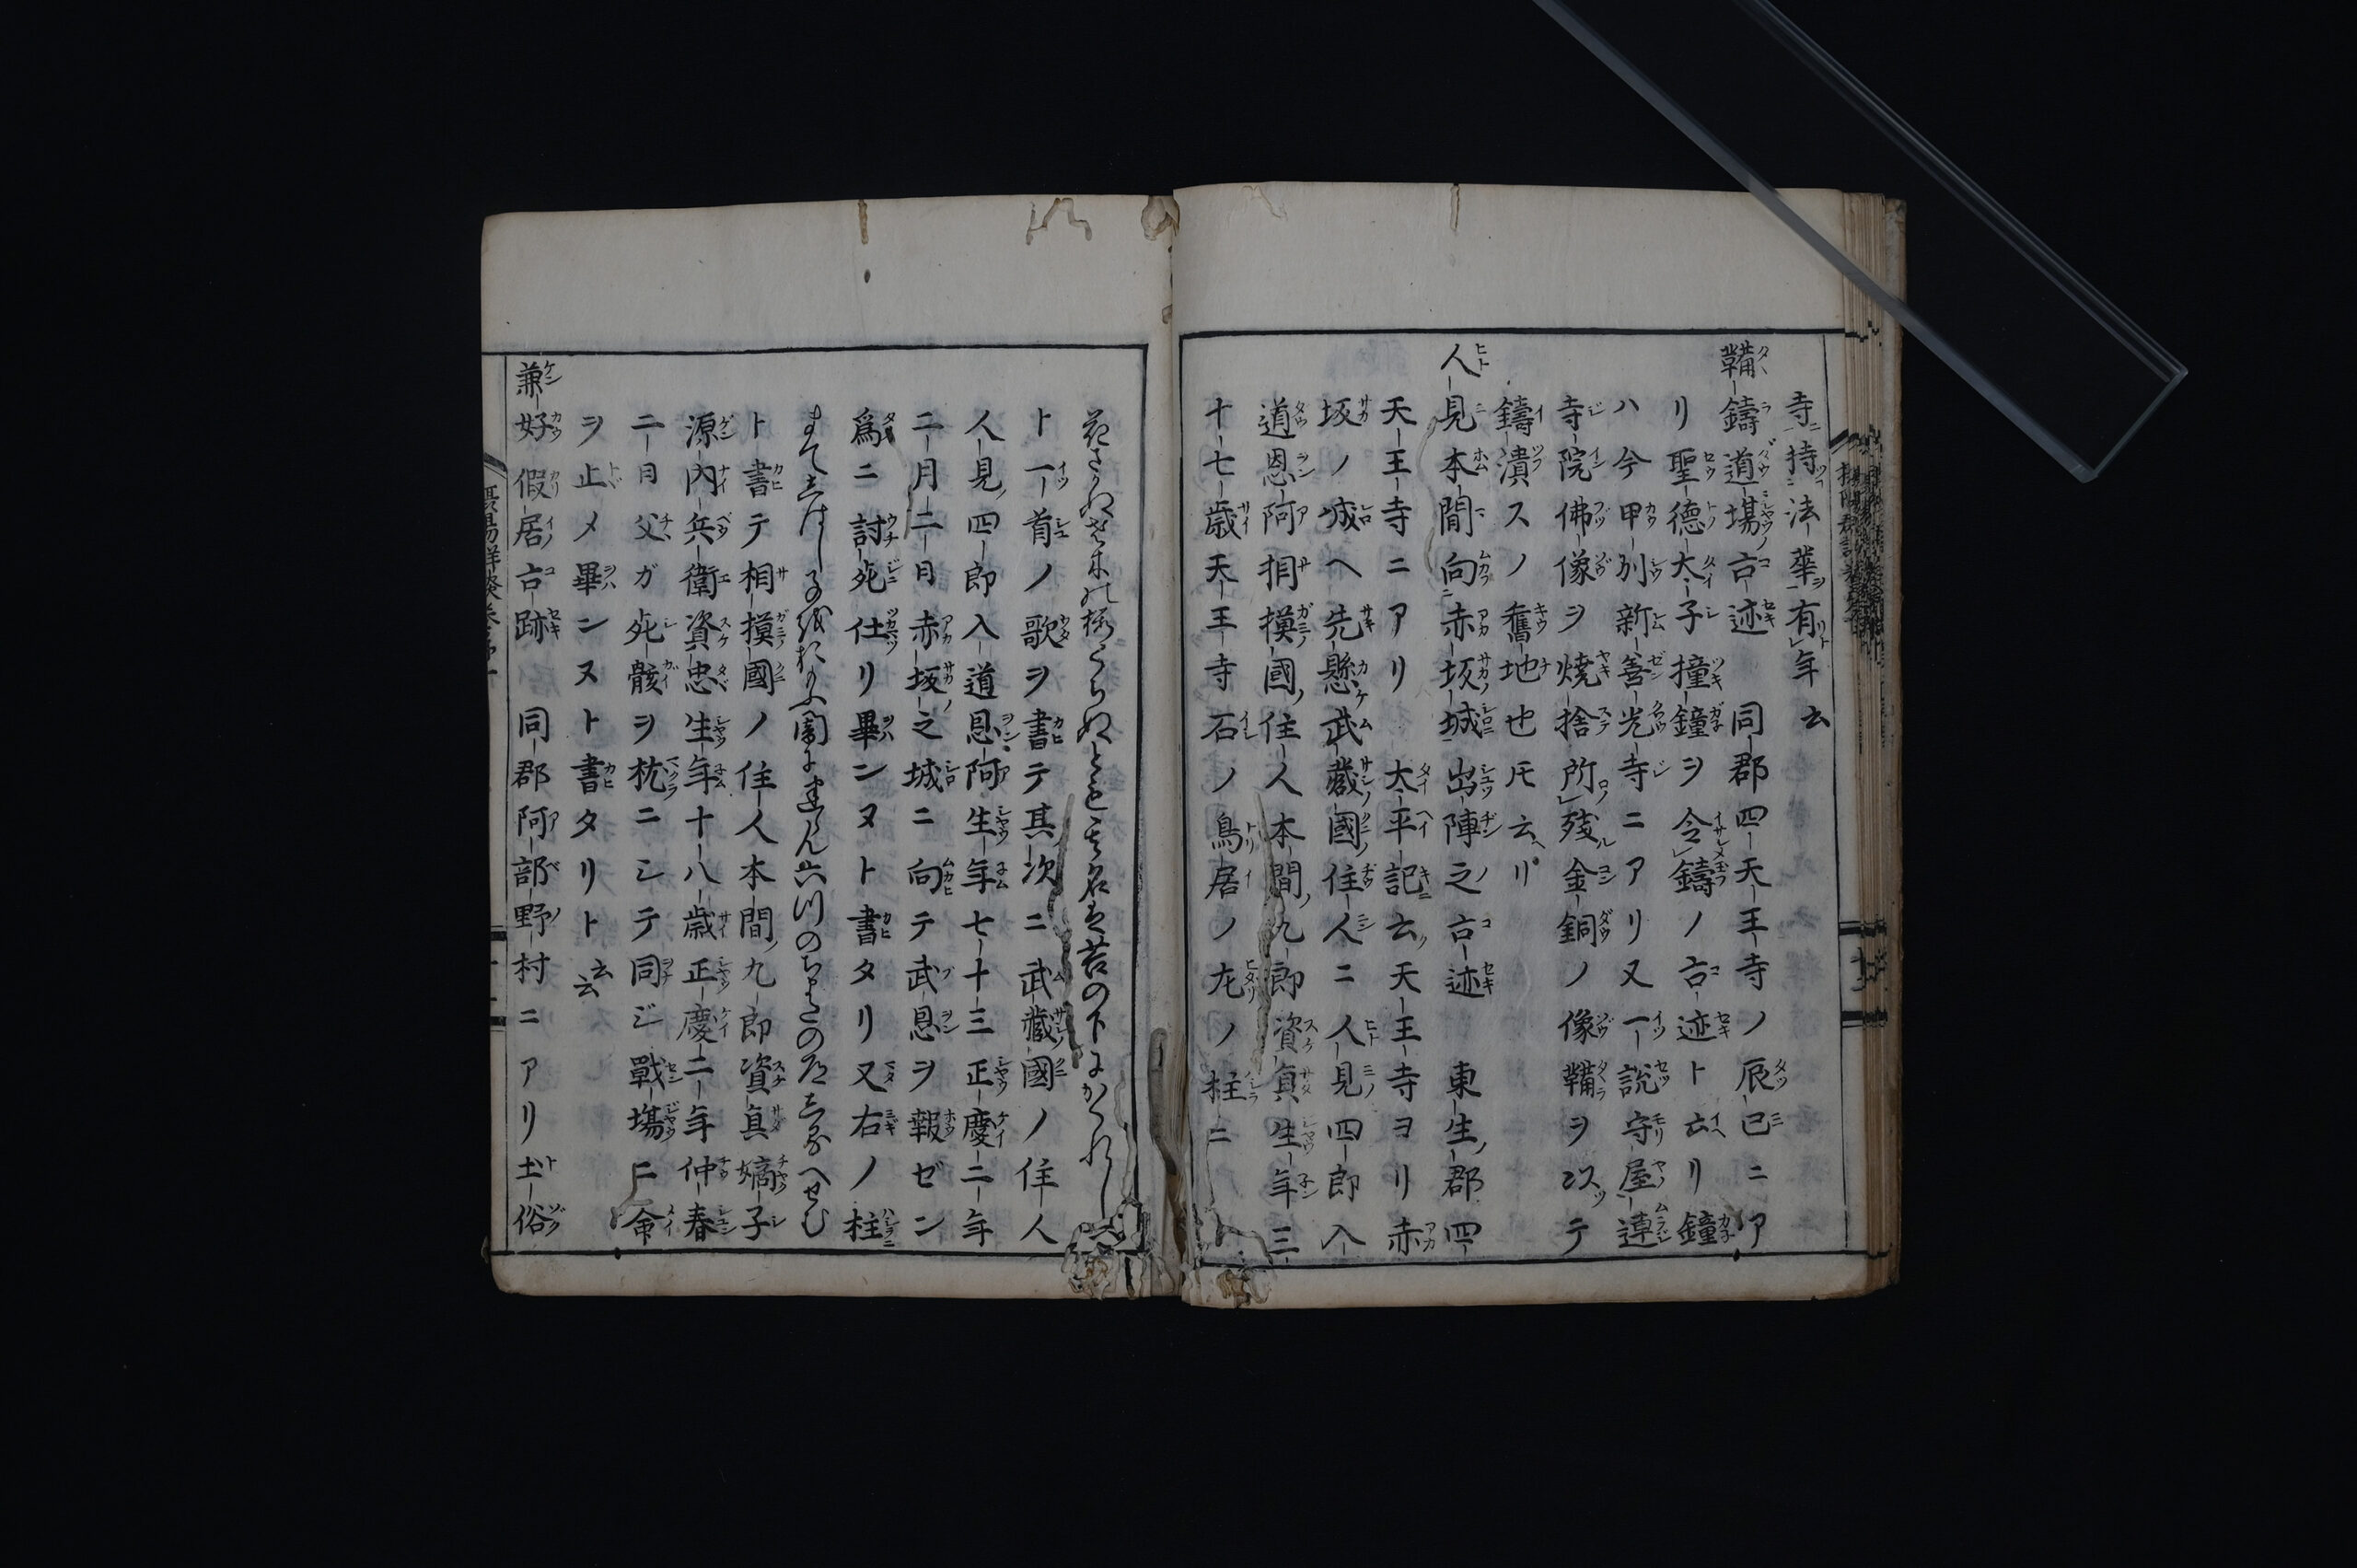 寺ニ持法華有年云
鞴鑄道場古迹 同郡四天王寺ノ辰巳ニア
リ聖德太子撞鐘ヲ令鑄ノ古迹ト云リ鐘
ハ今甲刕新善光寺ニアリ又一說守屋連
寺院佛像ヲ燒捨所殘金銅ノ像鞴ヲ以テ
鑄潰スノ舊地也トモ云リ
人見本間向赤坂城出陣之古迹 東生郡四
天王寺ニアリ太平記云天王寺ヨリ赤
坂ノ城ヘ先懸武藏國住人ニ人見四郎入
道恩阿相模國住人本間九郎資貞生年三
十七歲天王寺石ノ鳥居ノ左ノ柱ニ
花さかぬ老木の櫻くちぬとも其名は苔の下にかくれし
ト一首ノ歌ヲ書テ其次ニ武藏國ノ住人
人見四郎入道恩阿生年七十三正慶二年
二月二日赤坂之城ニ向テ武恩ヲ報ゼン
爲ニ討死仕リ畢ンヌト書タリ又右ノ柱
まてしはし子を思ふ闇に迷らん六つのちまたの道しるへせむ
ト書テ相摸國ノ住人本間九郎資真嫡子
源內兵衞資忠生年十八歲正慶二年仲春
二日父ガ死骸ヲ枕ニシテ同ジ戰場ニ命
ヲ止メ畢ンヌト書タリト云云
兼好假居古跡 同郡阿部野村ニアリ土俗